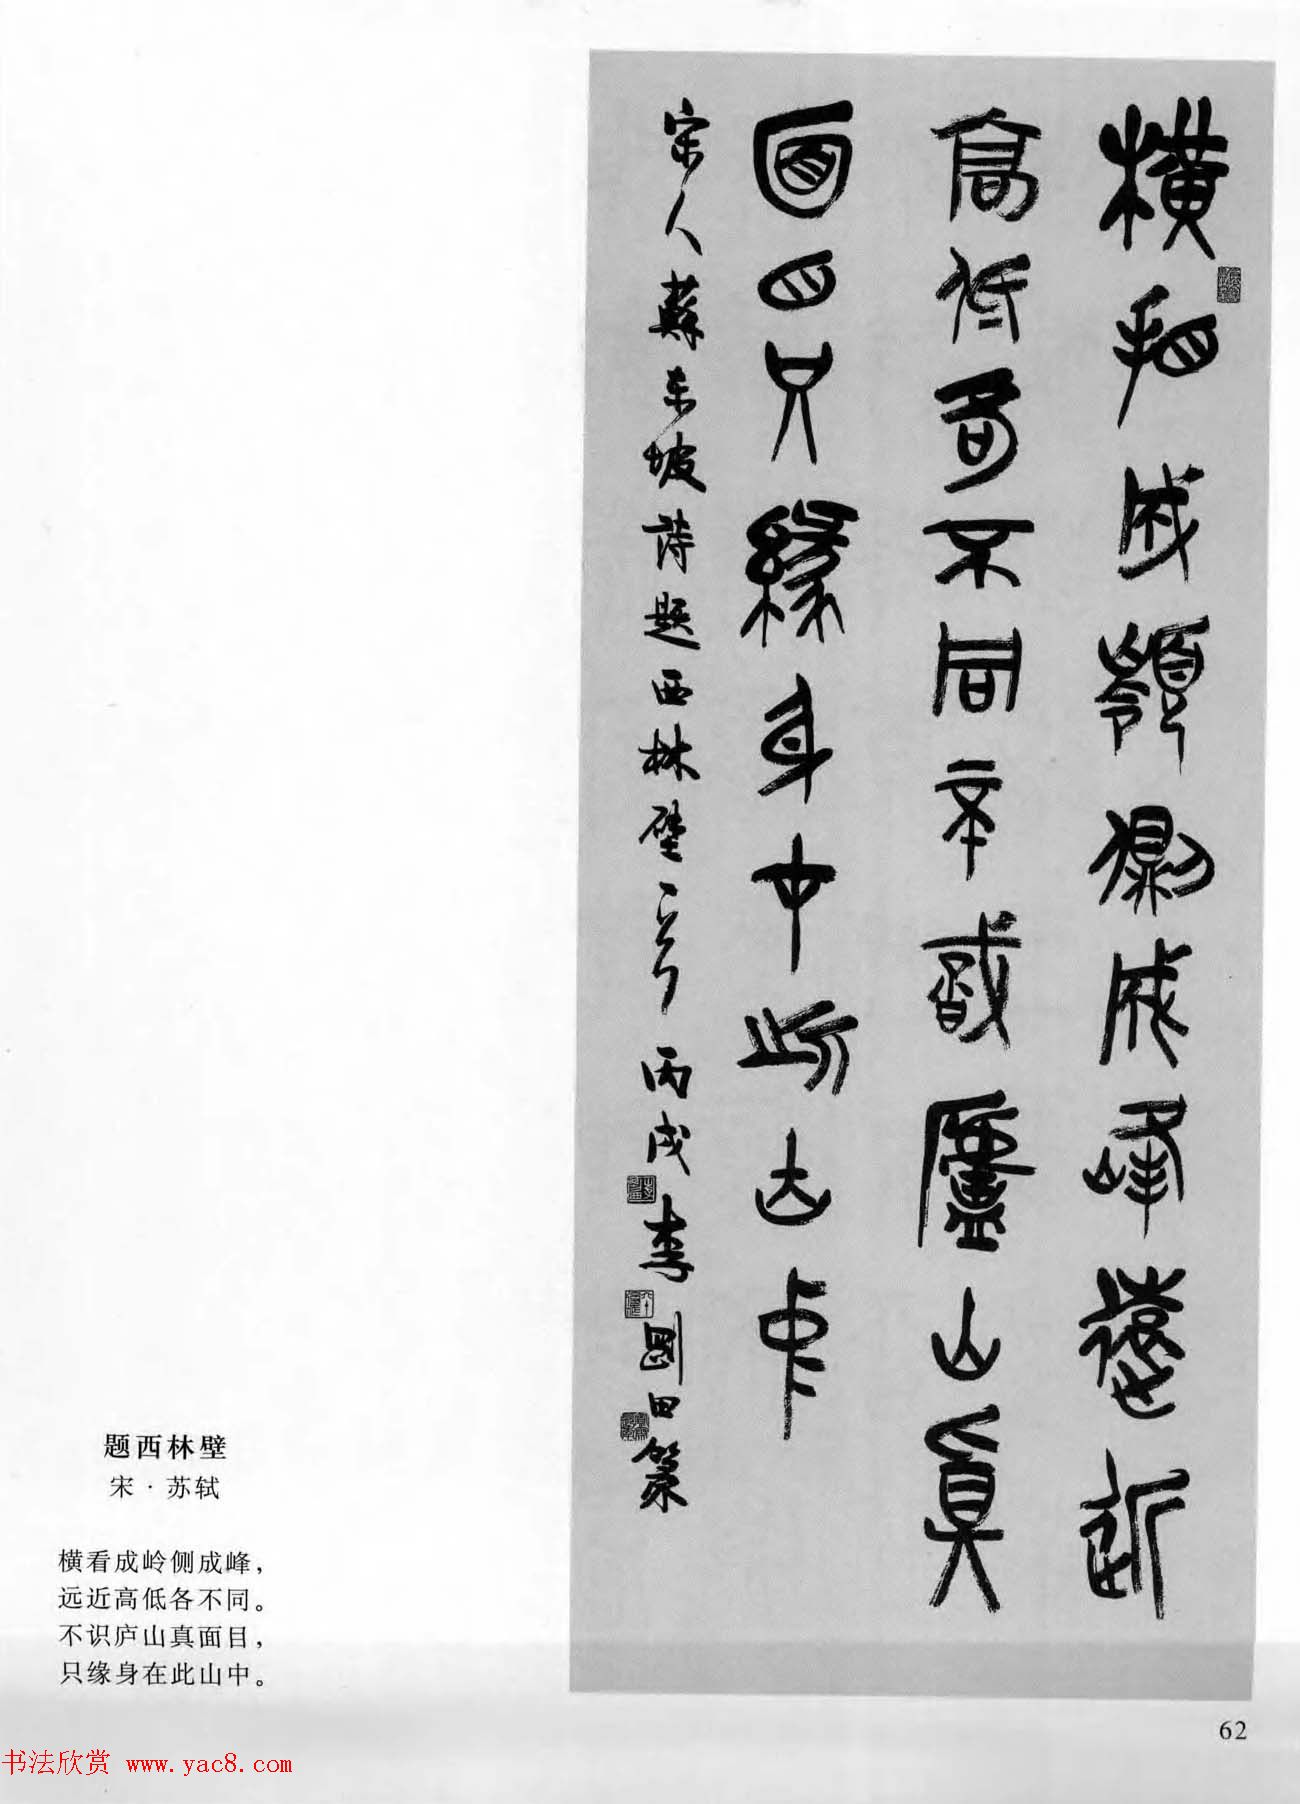 橫看成嶺側成峰遠近
高低各不同不識廬山真
面目只緣身在此山中
宋人蘇東坡詩題西林壁一首 丙戌 李剛田篆
题西林壁
宋·苏轼
横看成岭侧成峰，
远近高低各不同。
不识庐山真面目，
只缘身在此山中。
62
书法欣赏 www.yac8.com